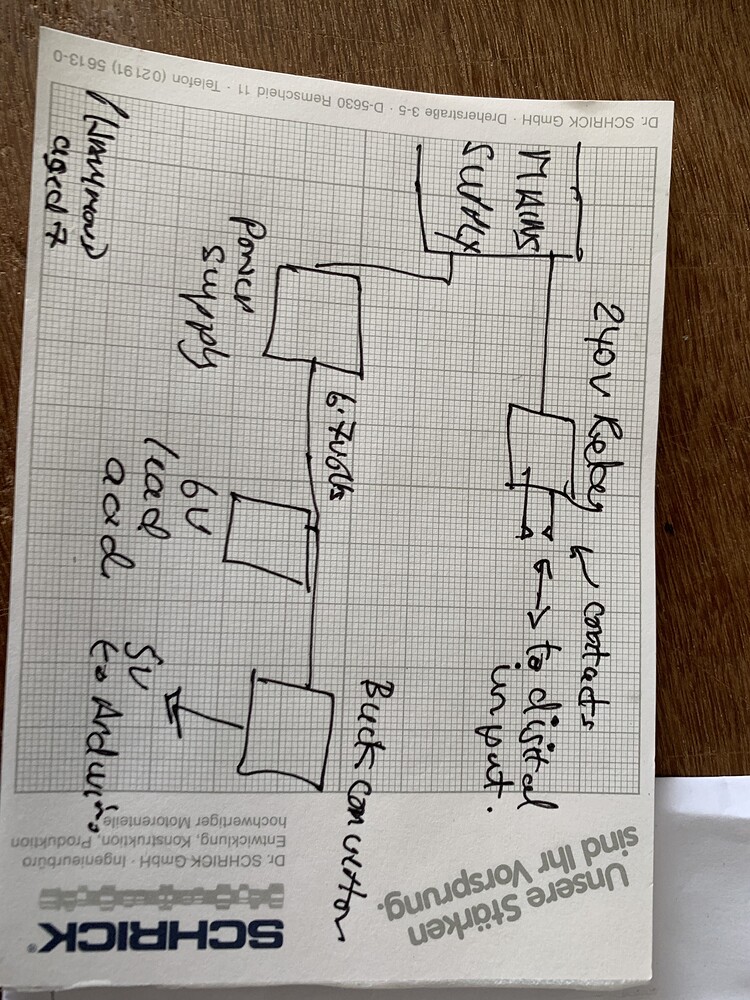 Dr. SCHRICK GmbH · Dreherstraße 3-5 · D-5630 Remscheid 11 · Telefon (02191) 5613-0
MAINS
SUPPLY
240V Relay
contacts
to digital
input.
power
supply
6.7volts
6V
lead
acid
Buck converter
5V
to Arduino
aged 7
Unsere Stärken
sind Ihr Vorsprung.
Dr. SCHRICK GmbH · Ingenieurbüro
Entwicklung, Konstruktion, Produktion
hochwertiger Motorenteile
SCHRICK®